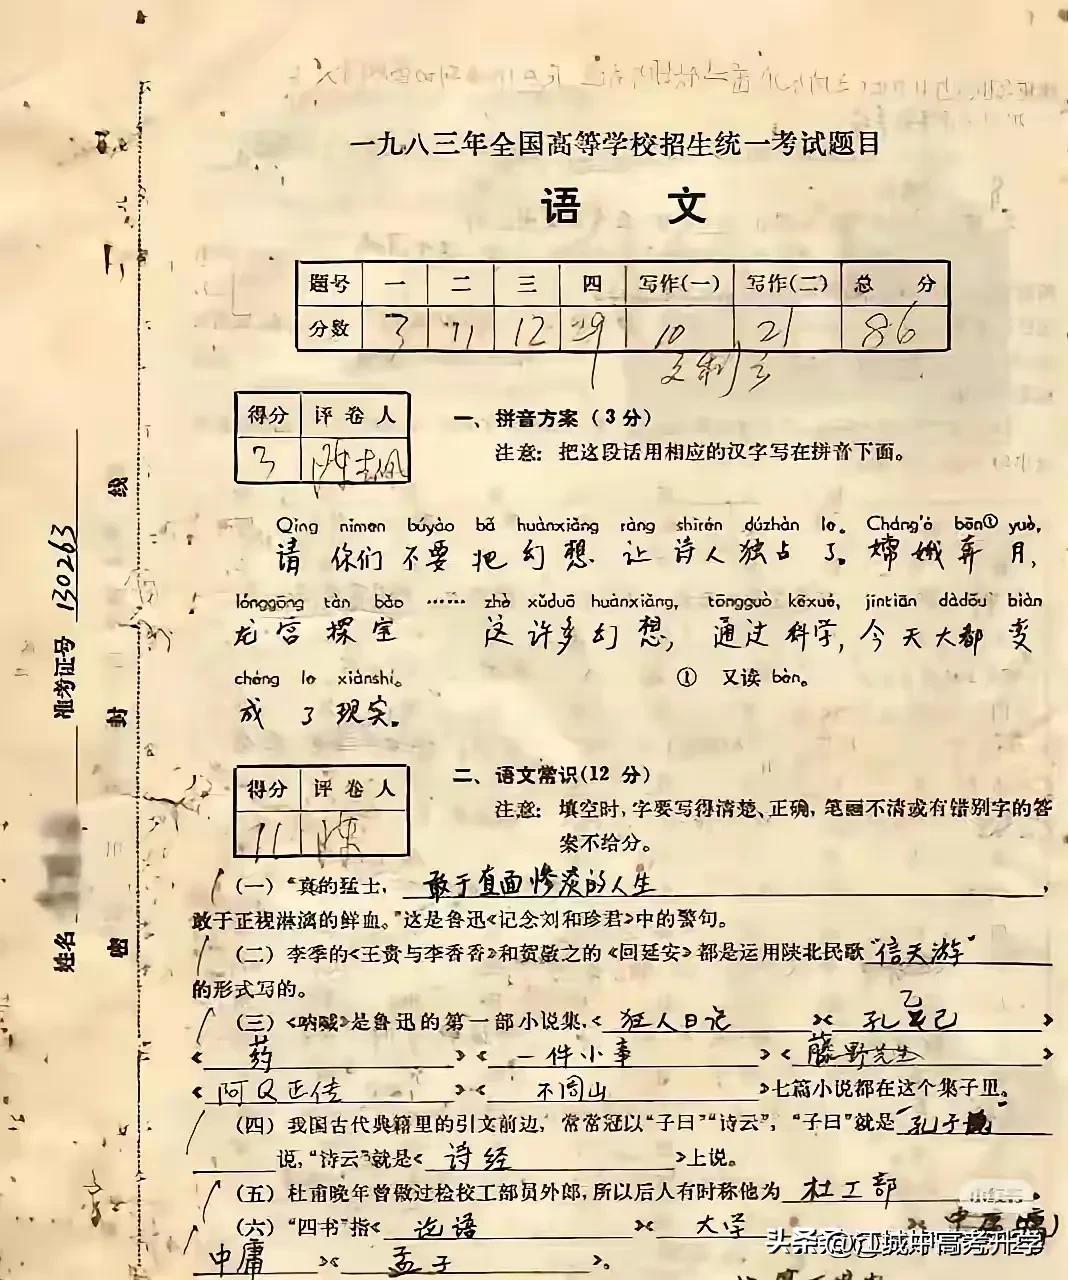 一九八三年全国高等学校招生统一考试题目
语 文
题号 一 二 三 四 写作(一) 写作(二) 总 分
分数 3 11 12 29 10 21 86
得分 评卷人
3
一、拼音方案（3分）
注意：把这段话用相应的汉字写在拼音下面。
Qǐng nǐmen búyào bǎ huànxiǎng ràng shīrén dúzhàn le。 Cháng'é bēn① yuè,
请 你们 不要 把 幻想 让 诗人 独占 了。嫦娥 奔 月,
lónggōng tàn bǎo …… zhè xǔduō huànxiǎng, tōngguò kēxué, jīntiān dàdōu biàn
龙宫 探 宝 这 许多 幻想, 通过 科学, 今天 大都 变
chéng le xiànshí。 ① 又读 bèn。
成 了 现实。
得分 评卷人
11 陈
二、语文常识(12 分)
注意：填空时,字要写得清楚、正确,笔画不清或有错别字的答
案不给分。
(一) “真的猛士, 敢于直面惨淡的人生,
敢于正视淋漓的鲜血。”这是鲁迅《记念刘和珍君》中的警句。
(二) 李季的《王贵与李香香》和贺敬之的《回延安》都是运用陕北民歌“信天游”
的形式写的。
(三)《呐喊》是鲁迅的第一部小说集,《狂人日记》《孔乙己》
《药》《一件小事》《藤野先生》
《阿Q正传》《不周山》七篇小说都在这个集子里。
(四) 我国古代典籍里的引文前边, 常常冠以“子曰”“诗云”, “子曰”就是“孔子
说,“诗云”就是《诗经》上说。
(五) 杜甫晚年曾做过检校工部员外郎,所以后人有时称他为 杜工部。
(六) “四书”指《论语》《大学》《中庸
中庸》《孟子》。
准考证号 130263
姓名
密 封 线
小红书
头条@江城中高考升学